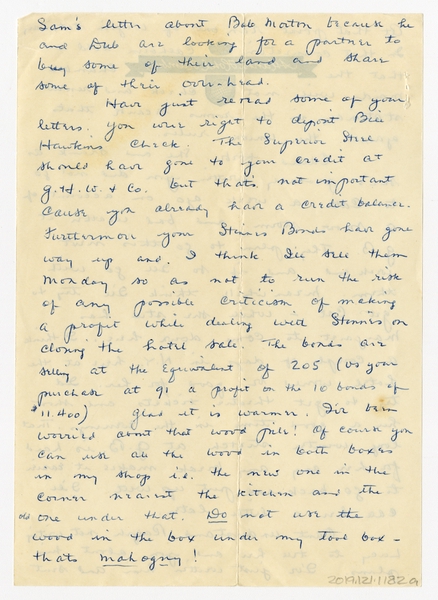 Sam's letter about Bob Morton because he
and Dub are looking for a partner to
buy some of their land and share
some of their over-head.
Have just reread some of your
letters. You were right to deposit Bill
Hawkins check. The Superior Steel
should have gone to your credit at
G.H.W. & Co. but thats not important
cause you already have a credit balance.
Furthermore your Bonds have gone
way up and I think I'll sell them
Monday so as not to run the risk
of any possible criticism of making
a profit while dealing with on
closing the hotel sale. The bonds are
selling at the equivalent of 205 (vs your
purchase at 91 a profit on the 10 bonds of
$11.400) Glad it is warmer. I've been
worried about that wood pile! Of course you
can use all the wood in both boxes
in my shop i.e. the new one in the
corner nearest the kitchen and the
old one under that. Do not use the
wood in the box under my tool box -
thats mahogny!
2019.121.1182a